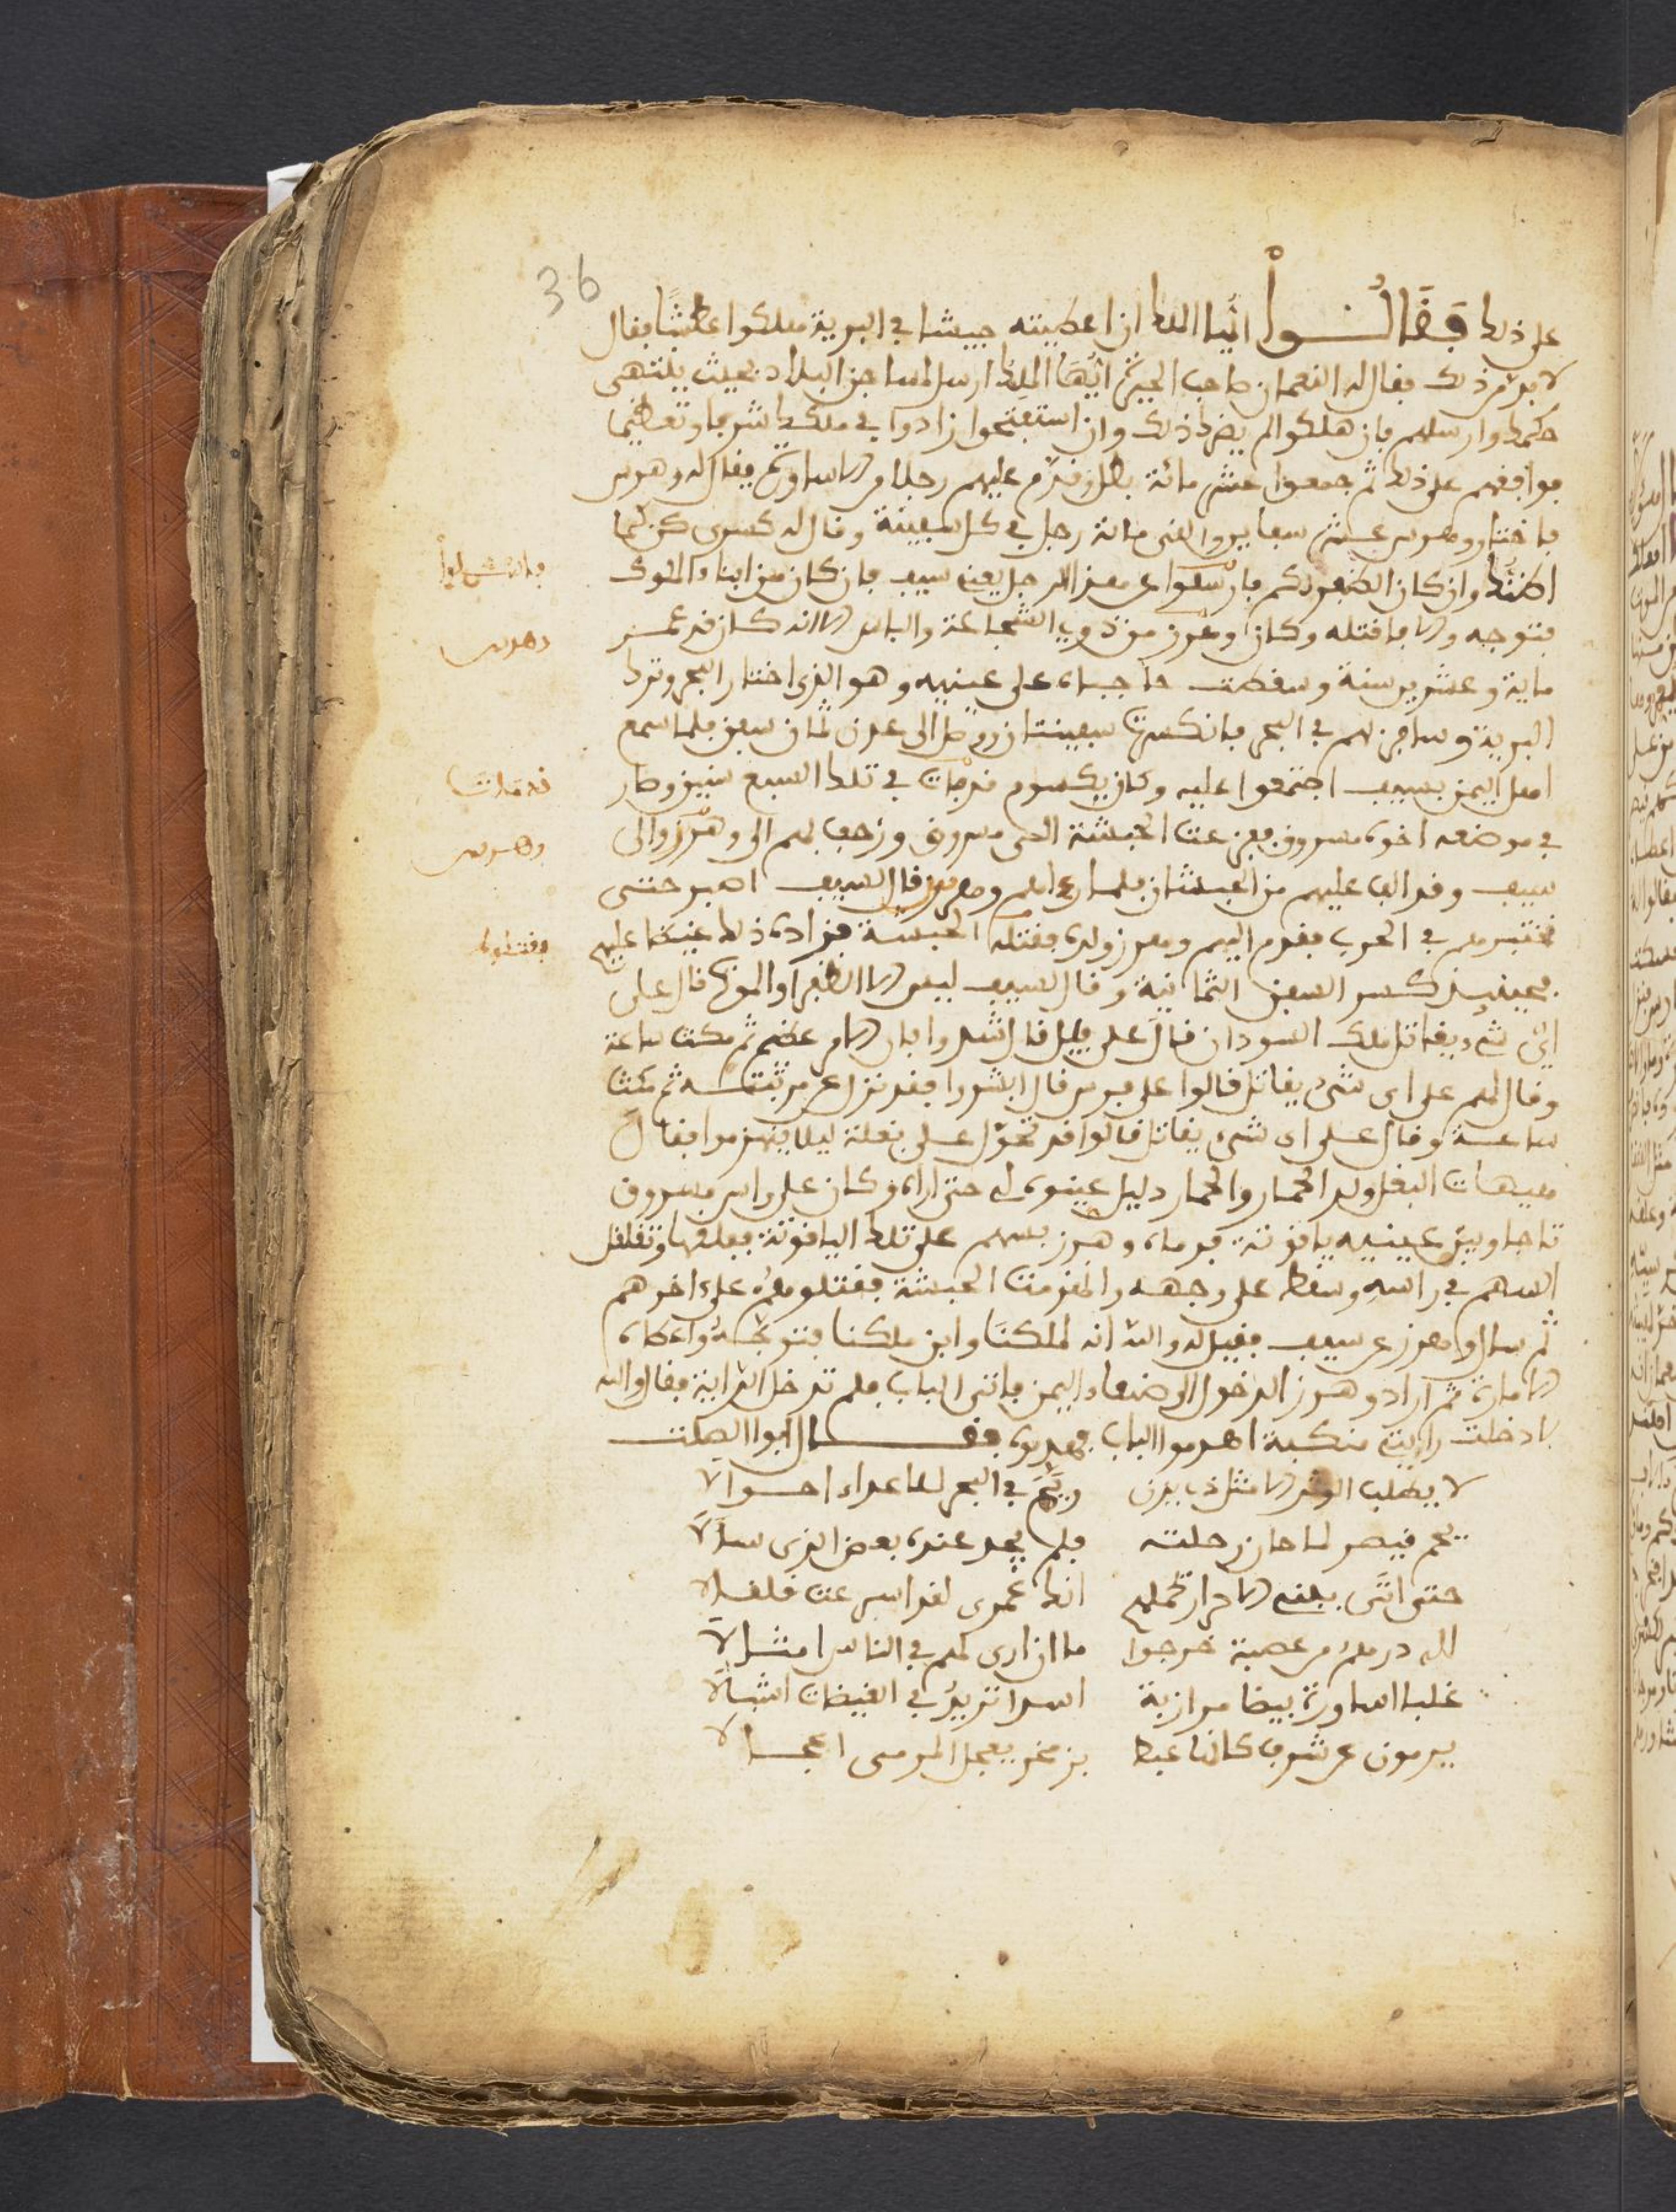 36
على ذلك فقالوا ايها الملك ان اعطيته جيشا في البرية هلكوا عطشا فقال
لا بد من ذلك فقال له النعمان صاحب الحيرة ايها الملك ارسل لمساجن البلاد بحيث ينتهى
حكمك وارسلهم فان هلكوا لم يضرك ذلك وان استفتحوا زادوا في ملكك شرفا وتعظيما
فوافقهم على ذلك ثم جمعوا عشر مائة بطل وقدم عليهم رجلا من الاساورة يقال له وهرس
فاختار وهرس عشر سفاين والقى مائة رجل في كل سفينة وقال له كسرى كن كما
اظنك وان كان الظفر لكم فارسلوا عن هذا الرجل يعني سيف فان كان من ابناء الملوك
فانشلوا
فتوجه والا فاقتله وكان وهرز من ذوي الشجاعة والباس الا انه كان قد عمر
وهرس
ماية وعشرين سنة وسقطت حاجباه على عينيه وهو الذي اختار البحر وترك
البرية وسافر بهم في البحر فانكسرت سفينتان ووصل الى عدن ثمان سفن فلما سمع
اهل اليمن بسيف اجتمعوا عليه وكان يكسوم قد مات في تلك السبع سنين وصار
قد مات
في موضعه اخوه مسروق ففزعت الحبشة الى مسروق وزحف لهم الى وهرز والى
وهرس
سيف وقد الف عليهم من الحبشان فلما راءاهم وهرز قال لسيف اصبر حتى
نختبرهم في الحرب فقدم اليهم وهرز ولده فقتله الحبشة فزاده ذلك غيظا عليهم
فقتلوه
فحينئذ كسر السفن الثمانية وقال لسيف ليس الا الظفر او الموت قال على
اي شيء يقاتل ملك السودان قال على فيل قال اثبتوا فان الامر عظيم ثم مكث ساعة
وقال لهم على اى شيء يقاتل قالوا على فرس قال ابشروا فقد نزل عن مرتبته ثم مكث
ساعة وقال على اى شيء يقاتل قالوا قد تحول على بغلة ليلا ينهزموا فقال
هيهات البغل ولد الحمار والحمار دليل عينوه لي حتى اراه وكان على راس مسروق
تاجا وبين عينيه ياقوتة فرماه وهرز بسهم على تلك الياقوتة ففلقها وتغلغل
السهم في راسه وسقط على وجهه وانهزمت الحبشة فقتلوهم على اخرهم
ثم سال وهرز عن سيف فقيل له والله انه لملكنا وابن ملكنا فتوجه واعطاه
الامارة ثم اراد وهرز الدخول الى صنعاء اليمن فاتى الباب فلم تدخل الراية فقال والله
لا دخلت رايتي منكسة اهدموا الباب فهدموه فقال ابوا الصلت
لا يطلب الوتر الا مثل ذي يزن ويمم في البحر للاعداء احوالا
يمم قيصر لما حان رحلته فلم يجد عنده بعض الذي سالا
حتى اتى ببني الاحرار تحملهم انك عمري لقد اسرعت قلقالا
لله درهم من عصبة خرجوا ما ان ارى لهم في الناس امثالا
غلبا اساورة بيضا مرازبة اسدا تربب في الغيضات اشبالا
يرمون عن شدف كانها غبط بزمخر يعجل المرمى اعجالا